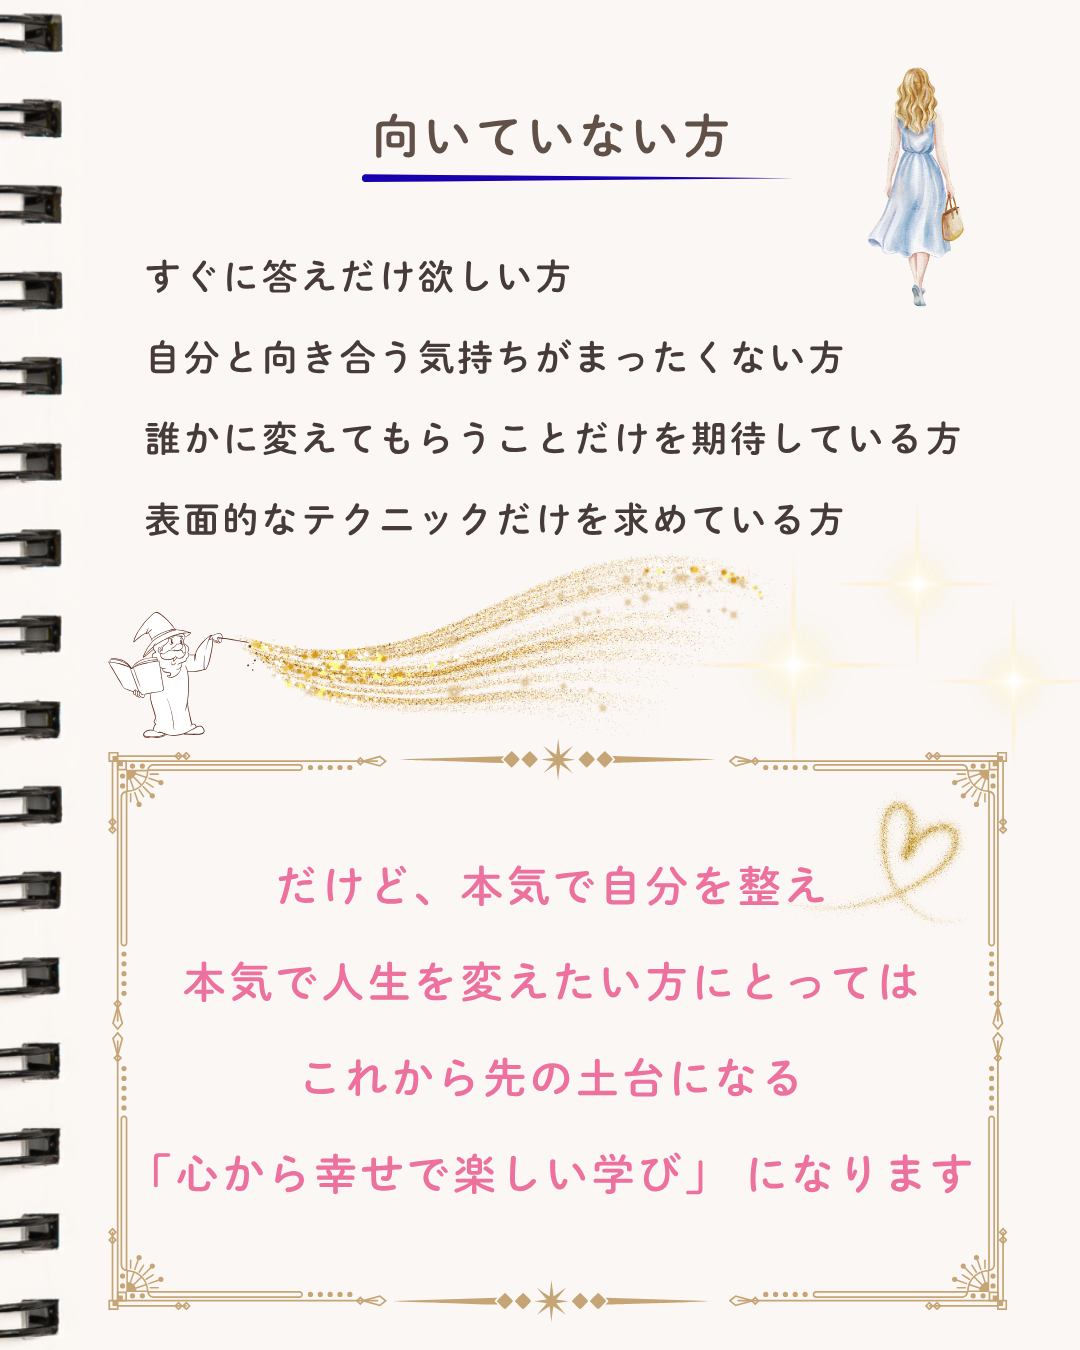 向いていない方
すぐに答えだけ欲しい方
自分と向き合う気持ちがまったくない方
誰かに変えてもらうことだけを期待している方
表面的なテクニックだけを求めている方
だけど、本気で自分を整え
本気で人生を変えたい方にとっては
これから先の土台になる
「心から幸せで楽しい学び」 になります